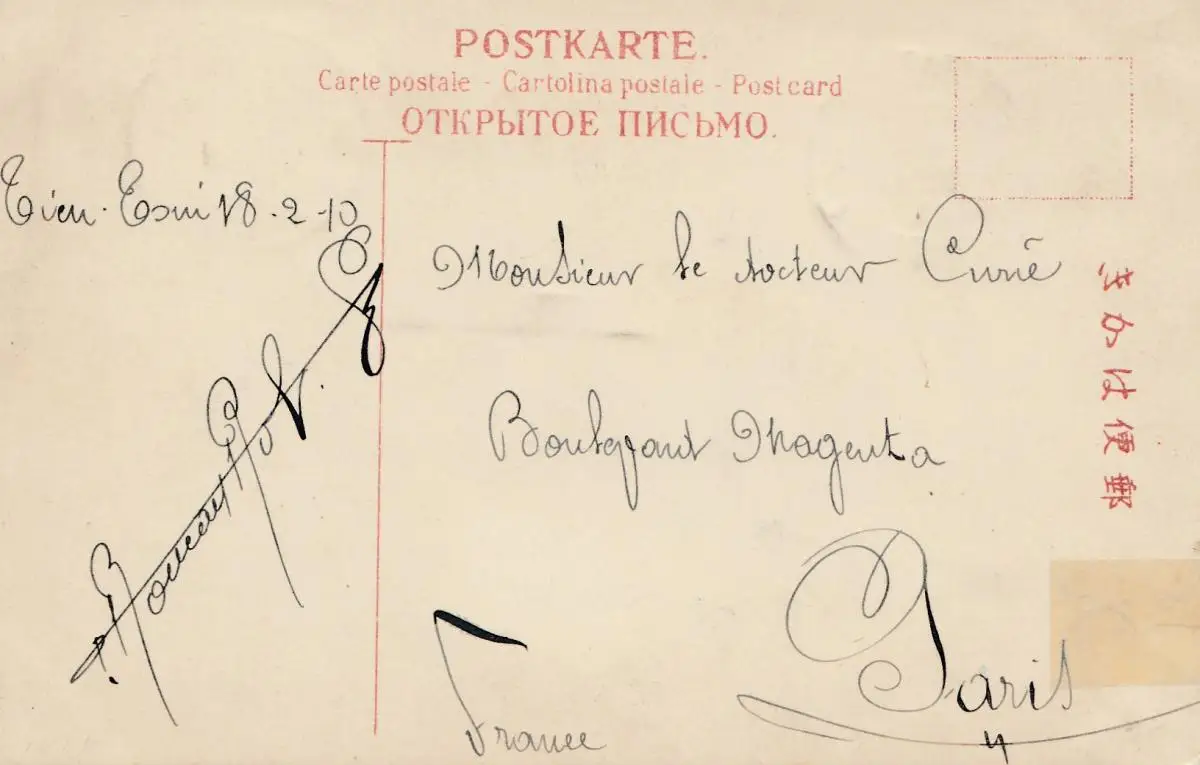 POSTKARTE.
Carte postale - Cartolina postale - Post card
ОТКРЫТОЕ ПИСЬМО.
Tien-Tsin 18-2-10
Monsieur le docteur Curie
Boulevard Magenta
Paris
France
きかは便郵